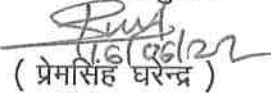 16/06/22
( प्रेमसिंह घरेन्द्र )